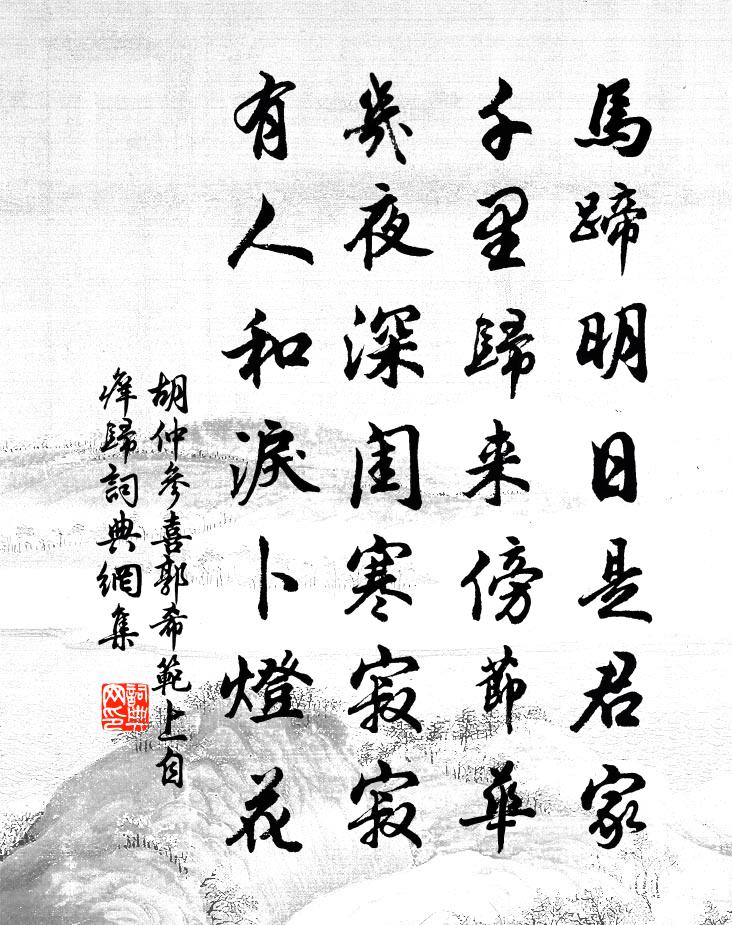 馬蹄明日是君家
千里歸来傍節華
幾夜深閨寒寂寂
有人和淚卜燈花
胡仲參喜郭希範上自
痒歸詞典網集
詞典网印